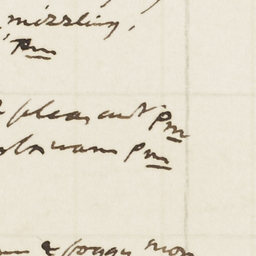 mizzling,
Pm
pleasant Pm
warm Pm
& foggy mor